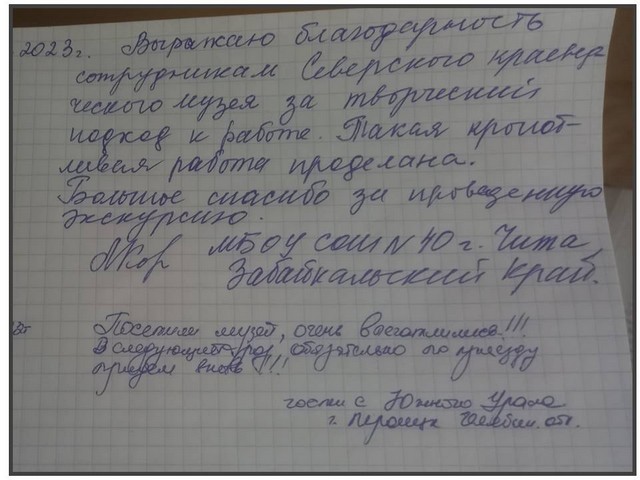 2023г. Выражаю благодарность
сотрудникам Северского краеве
ческого музея за творческий
подход к работе. Такая кропот-
ливая работа проделана.
Большое спасибо за проведенную
экскурсию.
МБОУ СОШ N 40 г. Чита
Забайкальский Край.
Посетили музей, очень восхитились!!!
В следующий раз, обязательно по приезду
придем вновь!!!
гости с Южного Урала
г. Челябин. обл.